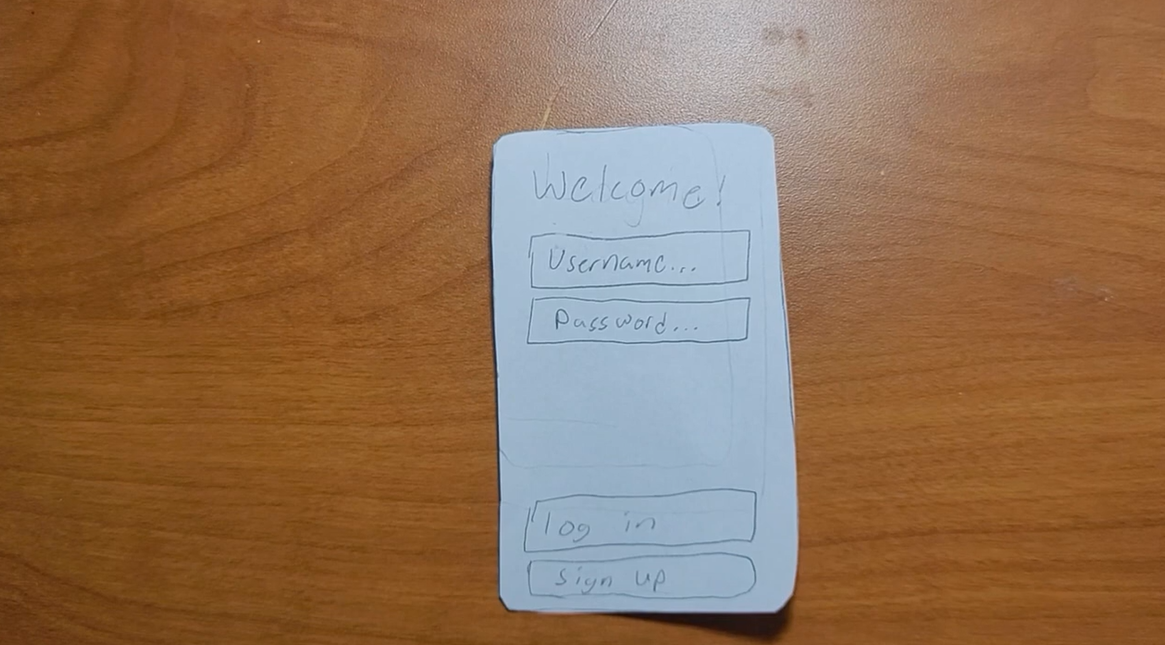 Welcome!
Username...
Password...
log in
sign up